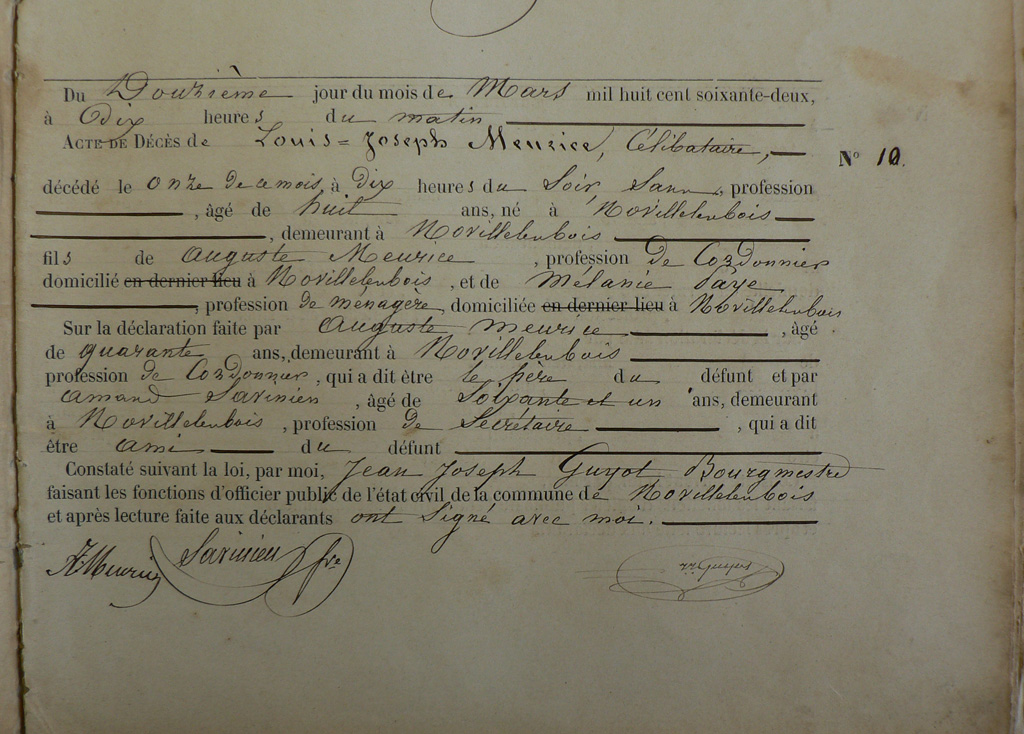 Du Douzième jour du mois de Mars mil huit cent soixante-deux,
à Dix heures du matin
ACTE DE DÉCÈS de Louis=Joseph Meurice, Célibataire,
N° 10.
décédé le onze de ce mois, à dix heures du Soir, Sans, profession
, âgé de huit ans, né à Novillelesbois
, demeurant à Novillelesbois
fils de Auguste Meurice, profession de Cordonnier
domicilié en dernier lieu à Novillelesbois, et de Mélanie Faye
, profession de ménagère, domiciliée en dernier lieu à Novillelesbois
Sur la déclaration faite par Auguste Meurice, âgé
de quarante ans, demeurant à Novillelesbois
profession de Cordonnier, qui a dit être le père du défunt et par
Amand Savinien, âgé de Soixante et un ans, demeurant
à Novillelesbois, profession de Secrétaire, qui a dit
être ami du défunt
Constaté suivant la loi, par moi, Jean Joseph Guyot Bourgmestre
faisant les fonctions d'officier public de l'état civil de la commune de Novillelesbois
et après lecture faite aux déclarants ont Signé avec moi.
A Meurice Savinien Guyot